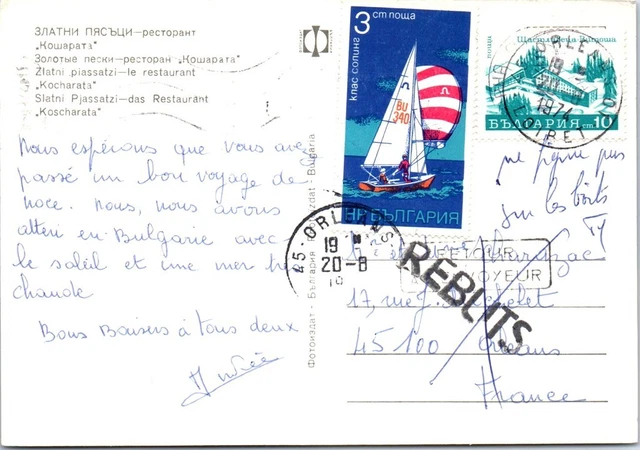 ЗЛАТНИ ПЯСЪЦИ—ресторант
„Кошарата"
Золотые пески—ресторан „Кошарата"
Zlatni piassatzi—le restaurant
„Kocharata"
Slatni Pjassatzi—das Restaurant
„Koscharata"
Nous espérons que vous avez
passé un bon voyage de
noce. nous, nous avons
atteri en Bulgarie avec
le soleil et une mer très
chaude
Bons Baisers à tous deux
Фотоиздат - България
Bulgaria
3 ст поща
клас солинг
BU
340
НР БЪЛГАРИЯ
поща
Щастливеца-Витоша
БЪЛГАРИЯ ст 10
ORLEA
19
1974
LOIRET
45-ORLEANS
19
20-8
19
RETOUR
ENVOYEUR
REBUTS
ne figure pas
sur les boîtes
17, rue J. Michelet
45100 Orléans
France